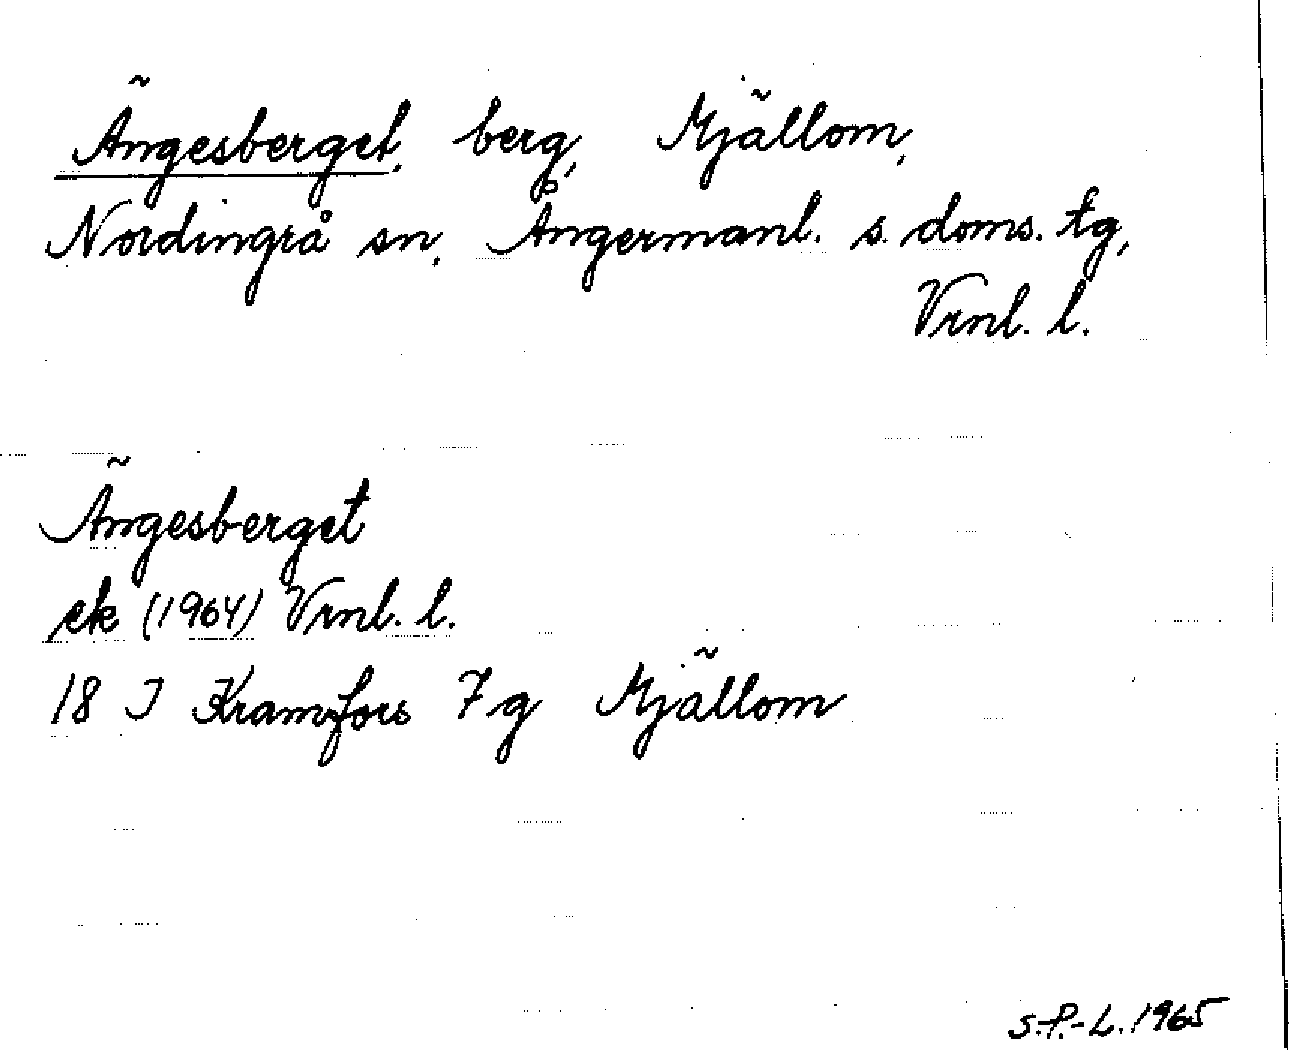 Ängesberget, berg, Mjällom,
Nordingrå sn, Ångermanl. s. doms. tg,
Vrnl. l.
Ängesberget
ek (1964) Vrnl. l.
18 I Kramfors 7g Mjällom
S.P.-L. 1965